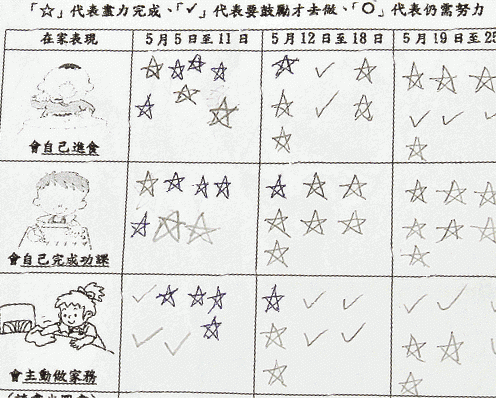 「☆」代表盡力完成、「✓」代表要鼓勵才去做、「○」代表仍需努力
在家表現
5月5日至11日
5月12日至18日
5月19日至25
會自己進食
會自己完成功課
會主動做家務